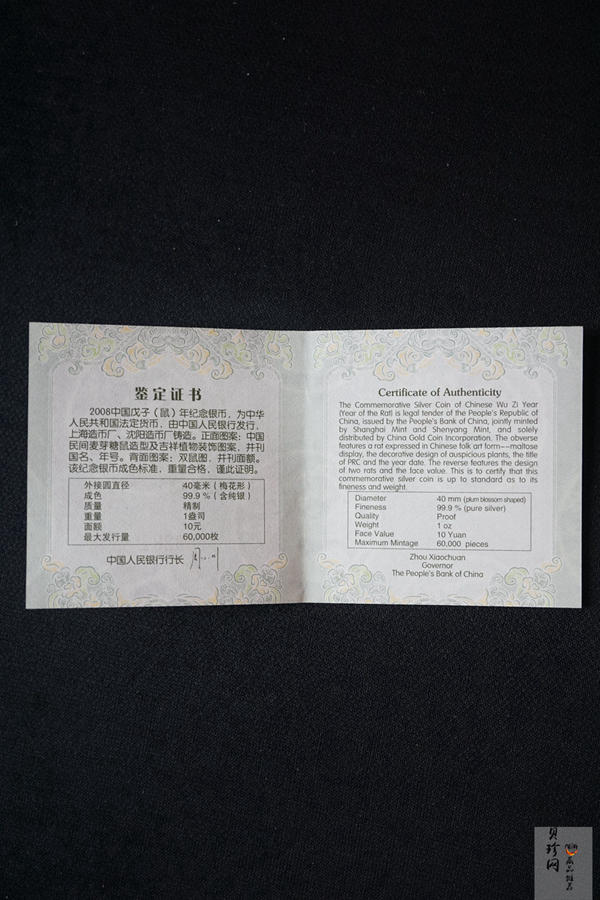 鉴定证书
2008中国戊子（鼠）年纪念银币，为中华
人民共和国法定货币，由中国人民银行发行，
上海造币厂、沈阳造币厂铸造。正面图案：中国
民间麦芽糖鼠造型及吉祥植物装饰图案，并刊
国名、年号。背面图案：双鼠图，并刊面额。
该纪念银币成色标准，重量合格，谨此证明。
外接圆直径 40毫米（梅花形）
成色 99.9％（含纯银）
质量 精制
重量 1盎司
面额 10元
最大发行量 60,000枚
中国人民银行行长
Certificate of Authenticity
The Commemorative Silver Coin of Chinese Wu Zi Year
(Year of the Rat) is legal tender of the People's Republic of
China, issued by the People's Bank of China, jointly minted
by Shanghai Mint and Shenyang Mint, and solely
distributed by China Gold Coin Incorporation. The obverse
features a rat expressed in Chinese folk art form——maltose
display, the decorative design of auspicious plants, the title
of PRC and the year date. The reverse features the design
of two rats and the face value. This is to certify that this
commemorative silver coin is up to standard as to its
fineness and weight.
Diameter 40 mm (plum blossom shaped)
Fineness 99.9 % (pure silver)
Quality Proof
Weight 1 oz
Face Value 10 Yuan
Maximum Mintage 60,000 pieces
Zhou Xiaochuan
Governor
The People's Bank of China
贝珍网